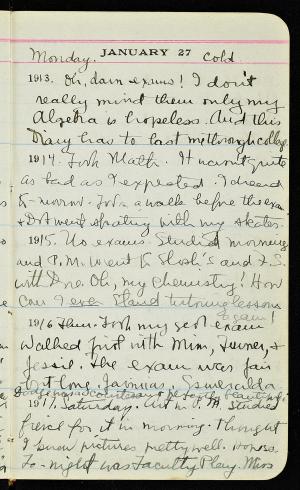 Monday. JANUARY 27 Cold.
1913. Oh, darn exams! I don't
really mind them only my
Algebra is hopeless. And this
Diary has to last me through college.
1914. Took Math. It wasn't quite
as bad as I expected. I dread
to-morrow. Took a walk before the exam
+ Dot went skating with my skates.
1915. No exams. Studied morning
and P.M. Went to Slosh's and
with Dre. Oh, my chemistry! How
can I ever stand tutoring lessons
again!
1916 Took my Geol exam
Walked first with Mim, Turner, +
Jessie. The exam was fair
but long.
1917. Saturday. Art in P.M. Studied
fierce for it in morning. thought
I knew pictures pretty well. Honors.
To-night was Faculty Play. Miss